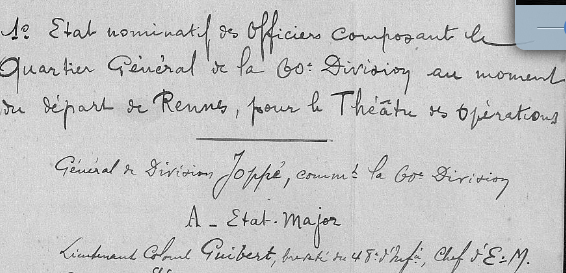 1º Etat nominatif des Officiers composant le
Quartier Général de la 60e Division au moment
du départ de Rennes, pour le Théâtre des opérations
Général de Division Joppé, commt la 60e Division
A - Etat-Major
Lieutenant Colonel Guibert, breveté du 48e d'Infie, Chef d'E-M.